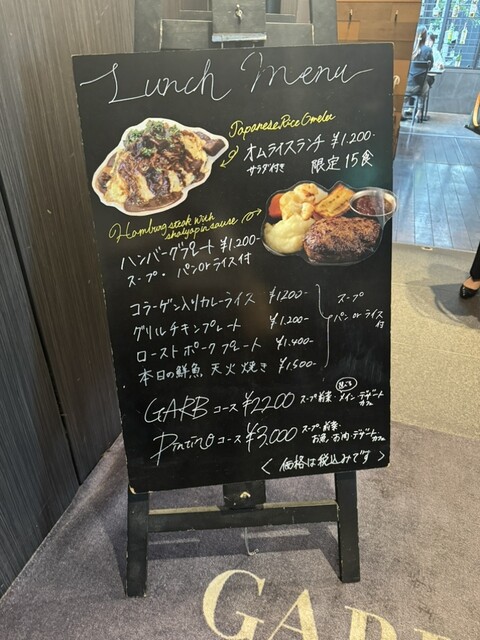 Lunch Menu
Japanese Rice Omelet
オムライスランチ ¥1.200-
サラダ付き 限定15食
Hamburg steak with
shalyapin sause
ハンバーグプレート ¥1.200-
スープ・パンorライス付
コラーゲン入りカレーライス ¥1200-
グリルチキンプレート ¥1.200-
ローストポークプレート ¥1.400-
本日の鮮魚 天火焼き ¥1.500-
スープ
パン or ライス
付
GARB コース ¥2200 スープ・前菜・メイン・デザート
カフェ
コース ¥3,000 スープ・前菜・
お魚・お肉・デザート・
カフェ
< 価格は税込みです >
GARB